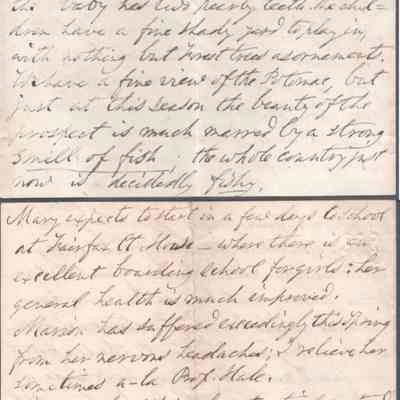 the baby has two pearly teeth. the chil=
dren have a fine shady yard to play in,
with nothing but Forest trees as ornament.
We have a fine view of the Potomac, but
just at this season the beauty of the
prospect is much marred by a strong
smell of fish; the whole country just
now is decidedly fishy.
Mary expects to start in a few days to school
at Fairfax Ct. House – where there is an
excellent boarding school for girls: her
general health is much improved.
Marion has suffered exceedingly this Spring
from her nervous headaches; I relieve her
sometimes a-la Prof. Hale.